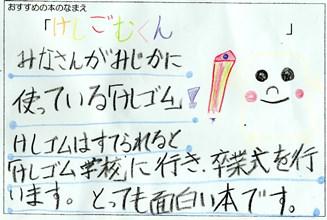 おすすめの本のなまえ
「けしごむくん」
みなさんがみじかに
使っている「けしゴム」!
けしゴムはすてられると
「けしゴム学校」に行き、卒業式を行
います。とっても面白い本です。